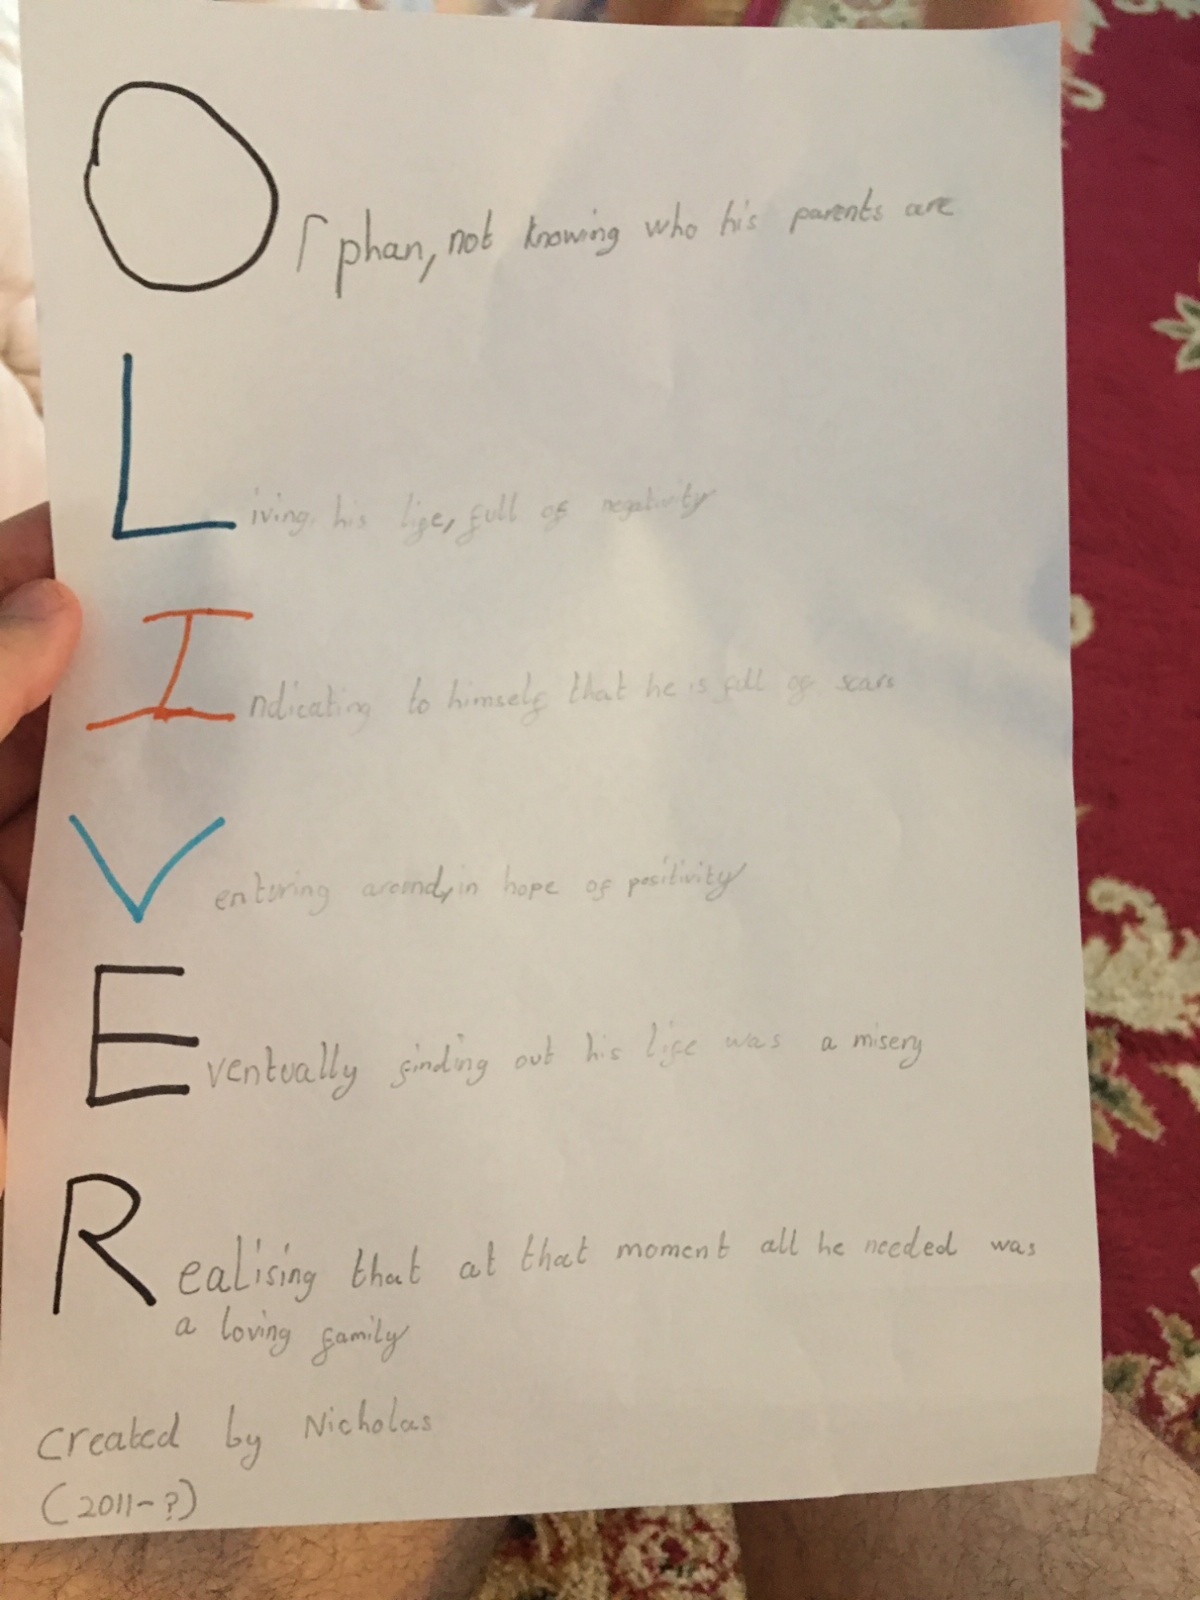 Orphan, not knowing who his parents are
Living his life, full of negativity
Indicating to himself that he is full of scars
Venturing around, in hope of positivity
Eventually finding out his life was a misery
Realising that at that moment all he needed was
a loving family
Created by Nicholas
(2011-?)